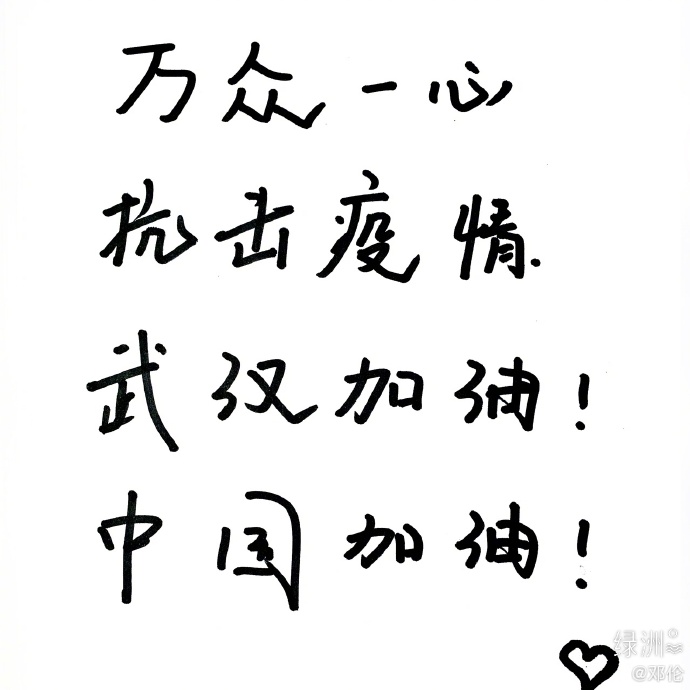 万众一心
抗击疫情.
武汉加油！
中国加油！
绿洲
@邓伦